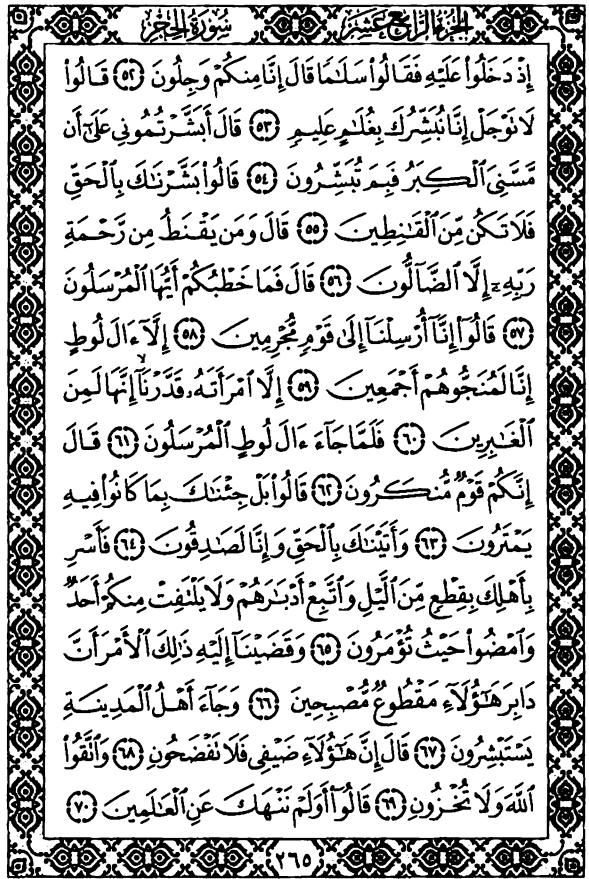 الجزء الرابع عشر سورة الحجر
إِذْ دَخَلُوا۟ عَلَيْهِ فَقَالُوا۟ سَلَـٰمًا قَالَ إِنَّا مِنكُمْ وَجِلُونَ ٥٢ قَالُوا۟
لَا تَوْجَلْ إِنَّا نُبَشِّرُكَ بِغُلَـٰمٍ عَلِيمٍ ٥٣ قَالَ أَبَشَّرْتُمُونِى عَلَىٰٓ أَن
مَّسَّنِىَ ٱلْكِبَرُ فَبِمَ تُبَشِّرُونَ ٥٤ قَالُوا۟ بَشَّرْنَـٰكَ بِٱلْحَقِّ
فَلَا تَكُن مِّنَ ٱلْقَـٰنِطِينَ ٥٥ قَالَ وَمَن يَقْنَطُ مِن رَّحْمَةِ
رَبِّهِۦٓ إِلَّا ٱلضَّآلُّونَ ٥٦ قَالَ فَمَا خَطْبُكُمْ أَيُّهَا ٱلْمُرْسَلُونَ
٥٧ قَالُوٓا۟ إِنَّآ أُرْسِلْنَآ إِلَىٰ قَوْمٍ مُّجْرِمِينَ ٥٨ إِلَّآ ءَالَ لُوطٍ
إِنَّا لَمُنَجُّوهُمْ أَجْمَعِينَ ٥٩ إِلَّا ٱمْرَأَتَهُۥ قَدَّرْنَآ ۙ إِنَّهَا لَمِنَ
ٱلْغَـٰبِرِينَ ٦٠ فَلَمَّا جَآءَ ءَالَ لُوطٍ ٱلْمُرْسَلُونَ ٦١ قَالَ
إِنَّكُمْ قَوْمٌ مُّنكَرُونَ ٦٢ قَالُوا۟ بَلْ جِئْنَـٰكَ بِمَا كَانُوا۟ فِيهِ
يَمْتَرُونَ ٦٣ وَأَتَيْنَـٰكَ بِٱلْحَقِّ وَإِنَّا لَصَـٰدِقُونَ ٦٤ فَأَسْرِ
بِأَهْلِكَ بِقِطْعٍ مِّنَ ٱلَّيْلِ وَٱتَّبِعْ أَدْبَـٰرَهُمْ وَلَا يَلْتَفِتْ مِنكُمْ أَحَدٌ
وَٱمْضُوا۟ حَيْثُ تُؤْمَرُونَ ٦٥ وَقَضَيْنَآ إِلَيْهِ ذَٰلِكَ ٱلْأَمْرَ أَنَّ
دَابِرَ هَـٰٓؤُلَآءِ مَقْطُوعٌ مُّصْبِحِينَ ٦٦ وَجَآءَ أَهْلُ ٱلْمَدِينَةِ
يَسْتَبْشِرُونَ ٦٧ قَالَ إِنَّ هَـٰٓؤُلَآءِ ضَيْفِى فَلَا تَفْضَحُونِ ٦٨ وَٱتَّقُوا۟
ٱللَّهَ وَلَا تُخْزُونِ ٦٩ قَالُوٓا۟ أَوَلَمْ نَنْهَكَ عَنِ ٱلْعَـٰلَمِينَ ٧٠
٢٦٥